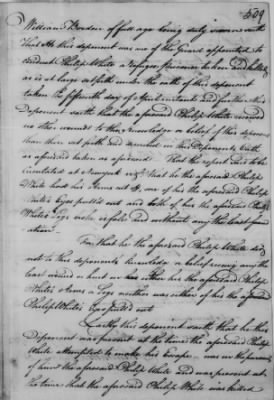 509
William Borden of full age being duly sworn saith
that he this deponent was one of the Guard appointed to
conduct Philip White a Refugee Prisoner to
as is at large set forth in the oath of this deponent
taken the fifteenth day of April instant and further this
Deponent saith that the aforesaid Philip White received
no other wounds to the knowledge or belief of this deponent
than those set forth and in this Deponents Oath
as aforesaid taken as aforesaid. That the report said to be
circulated at Newyork viz. That he the aforesaid Philip
White had his Arms cut & one of his the aforesaid Philip
White's Eyes pulled out and both of his the aforesaid Philip
White's Legs broke is false and without any the least foundation
For that he the aforesaid Philip White did
not to this deponents knowledge or belief receive any the
least wound or hurt on his the aforesaid Philip
White's Arms or Legs neither was either of his the aforesaid
Philip White's Eyes pulled out
Lastly this deponent saith that he this
Deponent was present at the time the aforesaid Philip
White attempted to make his Escape was in the pursuit
of him the aforesaid Philip White and was present at
the time that the aforesaid Philip White was killed